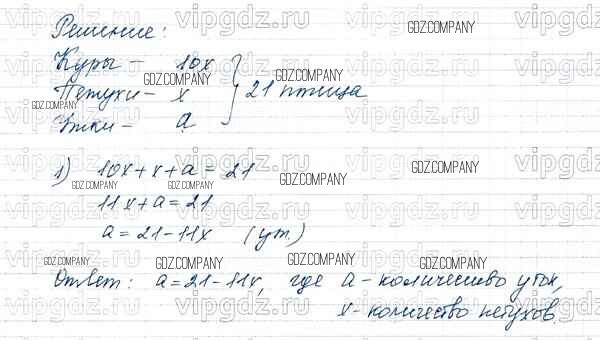 vipgdz.ru vipgdz.ru vipgdz.ru
Решение: GDZ.COMPANY
Куры — 10x
GDZ.COMPANY GDZ.COMPANY
Петухи — x } 21 птица
GDZ.COMPANY
Утки — a
vipgdz.ru vipgdz.ru vipgdz.ru
1) 10x + x + a = 21
GDZ.COMPANY GDZ.COMPANY GDZ.COMPANY
11x + a = 21
vipgdz.ru vipgdz.ru vipgdz.ru
a = 21 - 11x (ут.)
GDZ.COMPANY GDZ.COMPANY GDZ.COMPANY
Ответ: a = 21 - 11x, где a - количество уток,
vipgdz.ru vipgdz.ru vipgdz.ru
x - количество петухов.
GDZ.COMPANY GDZ.COMPANY GDZ.COMPANY